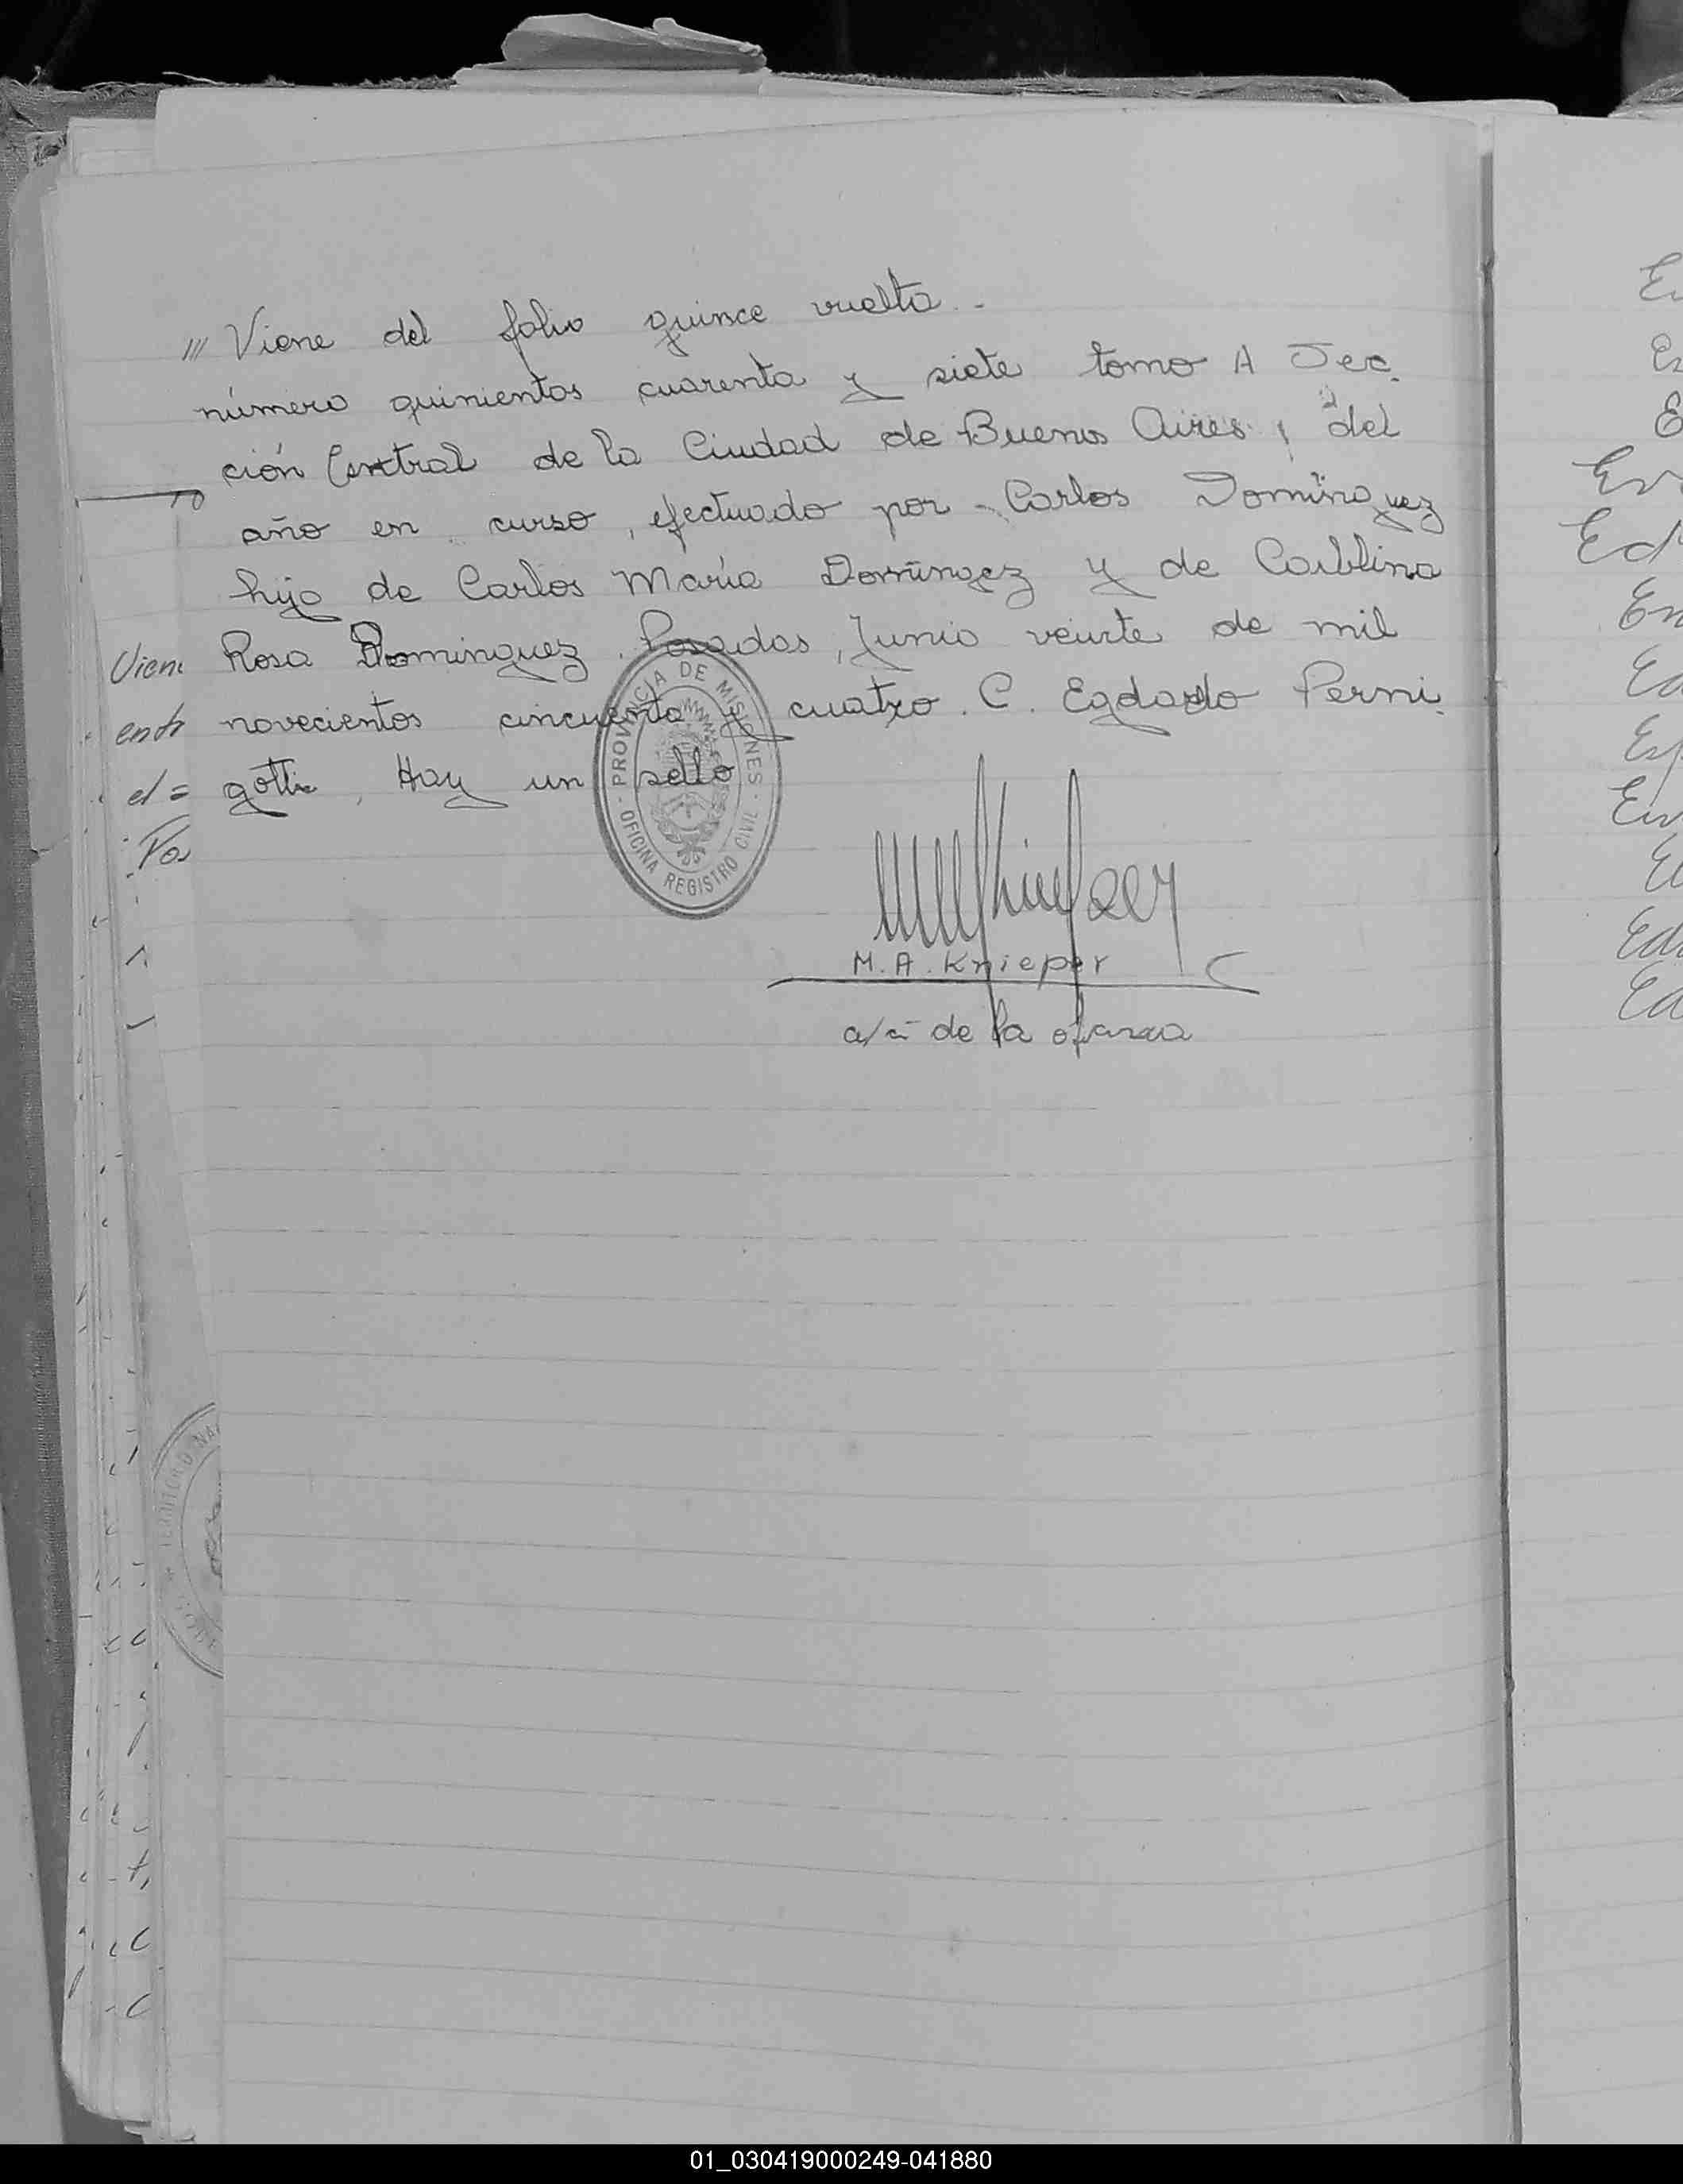 /// Viene del folio quince vuelta..-
número quinientos cuarenta y siete tomo A Sec.
ción Central de la Ciudad de Buenos Aires, del
año en curso, efectuado por - Carlos Domínguez
hijo de Carlos María Domínguez y de
Rosa Dominguez. Posadas, Junio veinte de mil
novecientos cincuenta y cuatro. C. Egdardo Perni.
gotti, Hay un sello
PROVINCIA DE MISIONES
OFICINA REGISTRO CIVIL
M. A. Knieper
a/c de la oficina
Vien
ent
el =
Pos
TERRITORIO NA
01_030419000249-041880